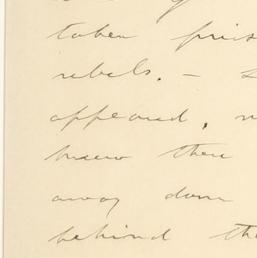 taken pris
rebels. –
appeared,
knew then
away down
behind th